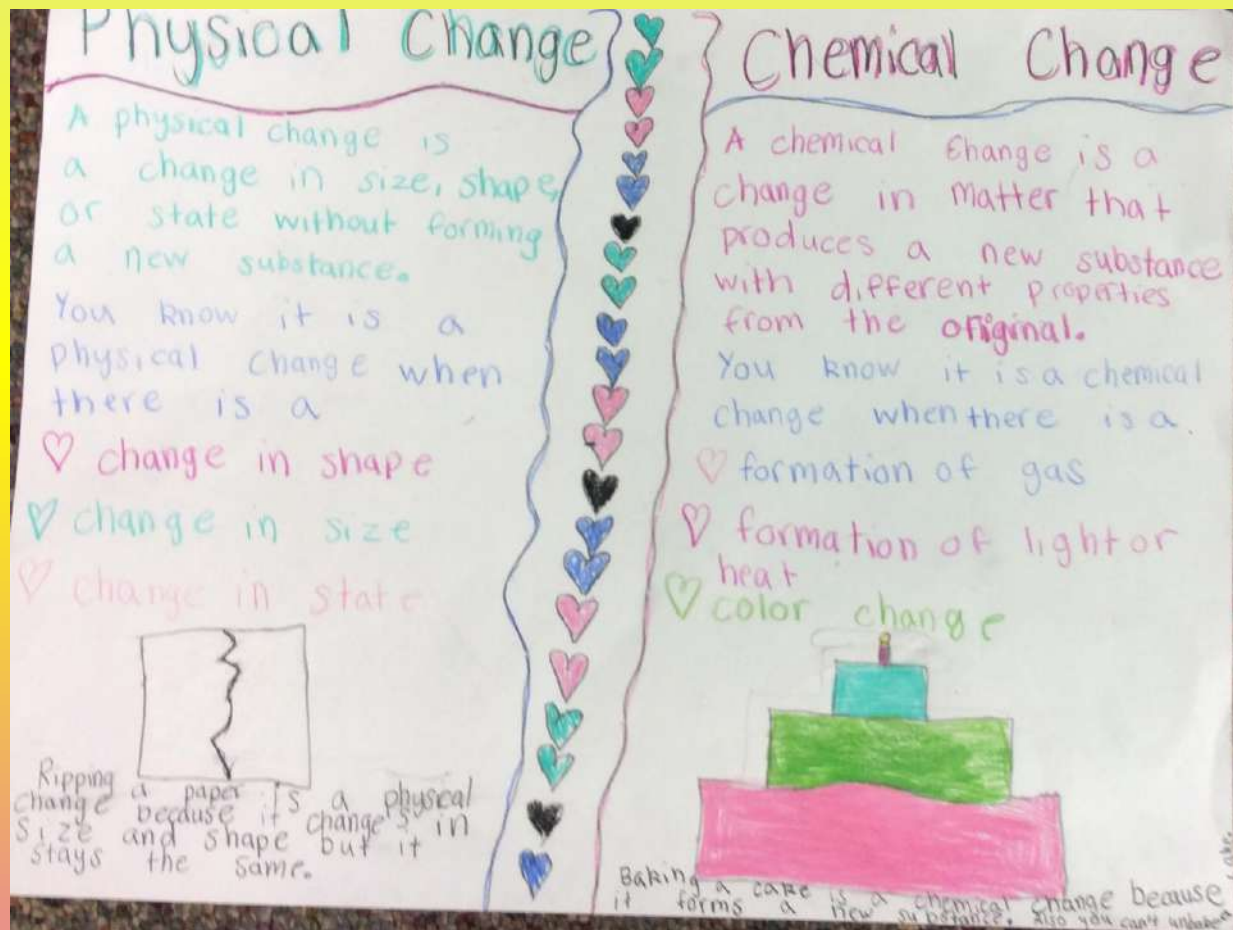 Physical Change
A physical change is
a change in size, shape,
or state without forming
a new substance.
You know it is a
physical change when
there is a
change in shape
change in size
change in state
Ripping a paper is a physical
change because it change's in
size and shape but it
stays the same.
Chemical Change
A chemical change is a
change in matter that
produces a new substance
with different properties
from the original.
You know it is a chemical
change when there is a.
formation of gas
formation of light or
heat
color change
Baking a cake is a chemical change because
it forms a new substance. Also you can't unbake
a cake.